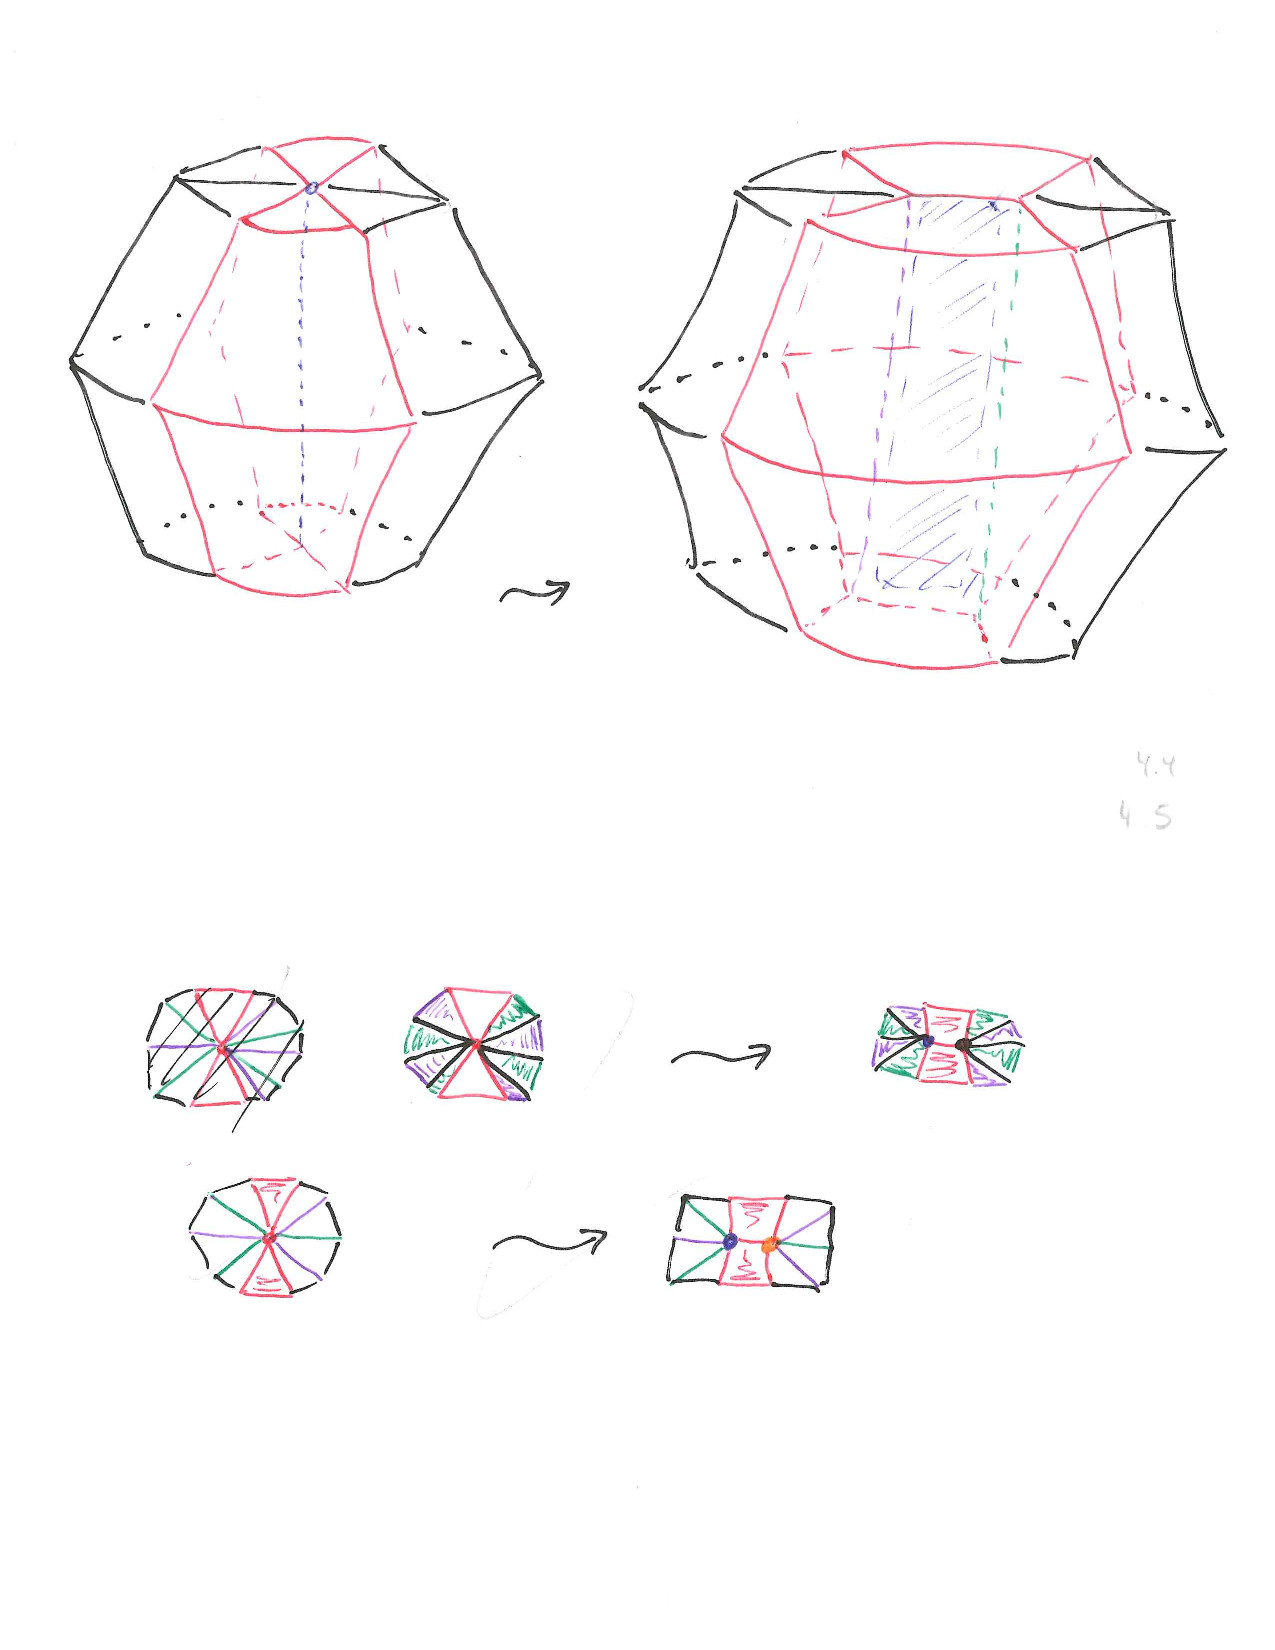 4.4
4 5